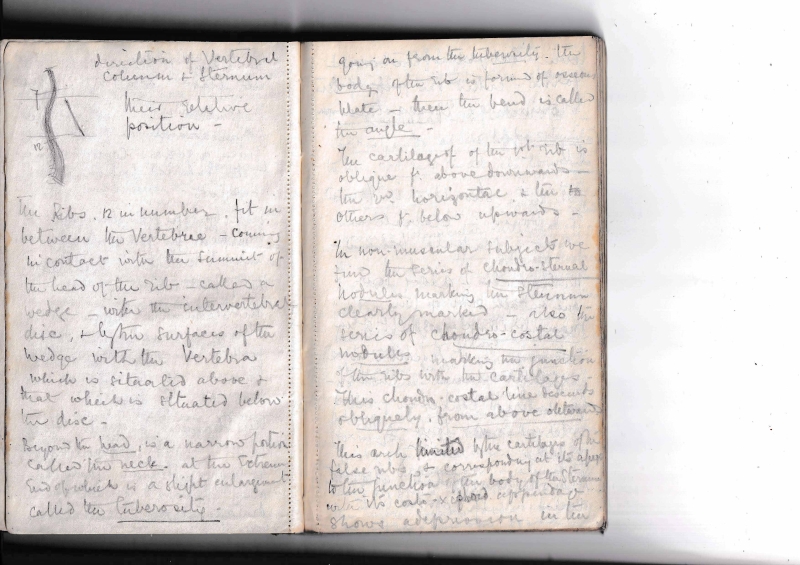 direction of Vertebral
Column & Sternum
7
their relative
position –
12
The Ribs. 12 in number. fit in
between the Vertebrae – coming
in contact with the summit of
the head of the rib – called a
wedge – with the intervertebral
disc, & by the surfaces of the
wedge with the Vertebra
which is situated above &
that which is situated below
the disc –
Beyond the head, is a narrow portion
called the neck. at the Extreme
End of which is a slight enlargement
called the tuberosity. –
going on from the tuberosity. the
body of the rib is formed of osseous
plate – then the bend is called
the angle –
The cartilage of of the 1st rib is
oblique f. above downwards –
the 2d. horizontal & the
others f. below upwards –
In non-muscular subjects we
find the series of chondro-sternal
nodules marking the Sternum
clearly marked – also the
series of chondro-costal
nodules marking the junction
of the ribs with the cartilages.
This chondro-costal line descends
obliquely, from above
This arch limited by the cartilages of the
false ribs, & corresponding at its apex
to the junction of the body of the Sternum
with its appendage
shows a depression in the